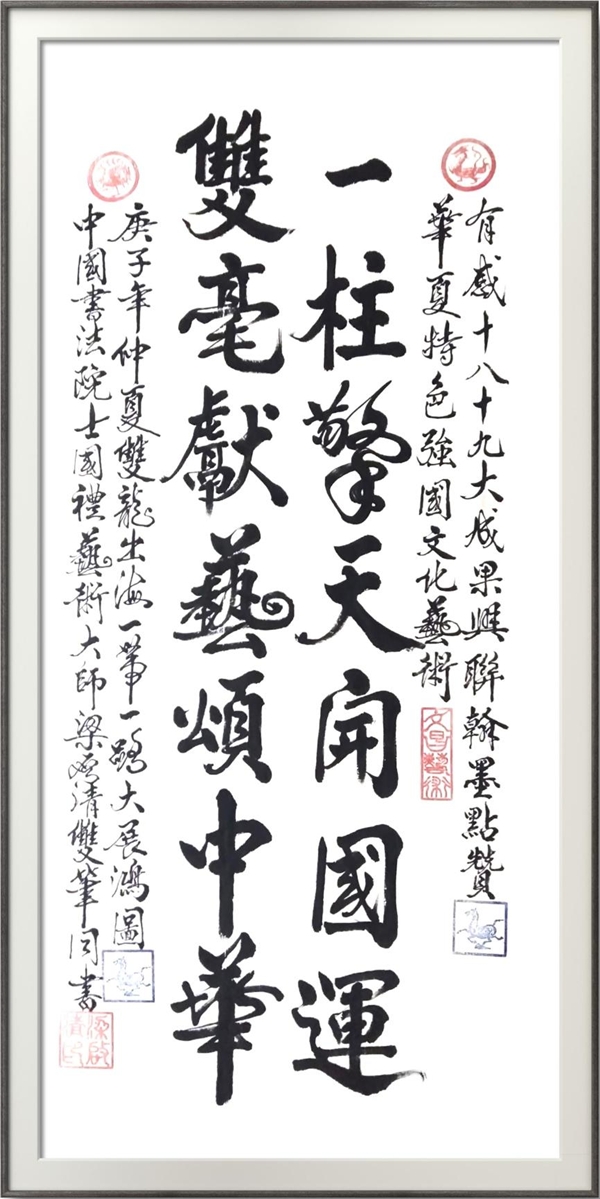 有感十八十九大成果興聯翰墨點贊
華夏特色強國文化藝術
文昌藝術
一柱擎天開國運
雙毫獻藝頌中華
庚子年仲夏雙龍出海一帶一路大展鴻圖
中國書法院士國禮藝術大師梁啟清雙筆同書
梁啟清印